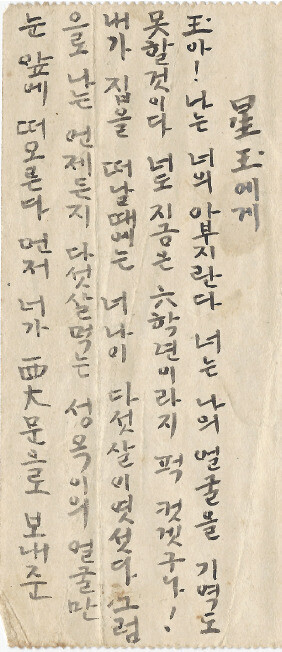 星玉에게
玉아! 나는 너의 아부지란다 너는 나의 얼굴을 기역도
못할것이다 너도 지금은 六학년이라지 퍽 컷겟구나!
내가 집을 떠날때에는 너 나이 다섯살이엿섯다 그럼
으로 나는 언제든지 다섯살먹는 성옥이의 얼굴만
눈 앞에 떠오른다 먼저 너가 西大문을로 보내준